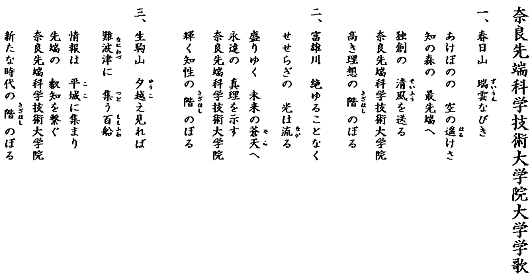 奈良先端科学技術大学院大学学歌
一、春日山 瑞雲なびき
あけぼのの 空の遙けさ
知の森の 最先端へ
独創の 清風を送る
奈良先端科学技術大学院
高き理想の 階 のぼる
二、富雄川 絶ゆることなく
せせらぎの 光は流る
盛りゆく 未来の蒼天へ
永遠の 真理を示す
奈良先端科学技術大学院
輝く知性の 階 のぼる
三、生駒山 夕越え見れば
難波津に 集う百船
情報は 平城に集まり
先端の 叡知を繋ぐ
奈良先端科学技術大学院
新たな時代の 階 のぼる